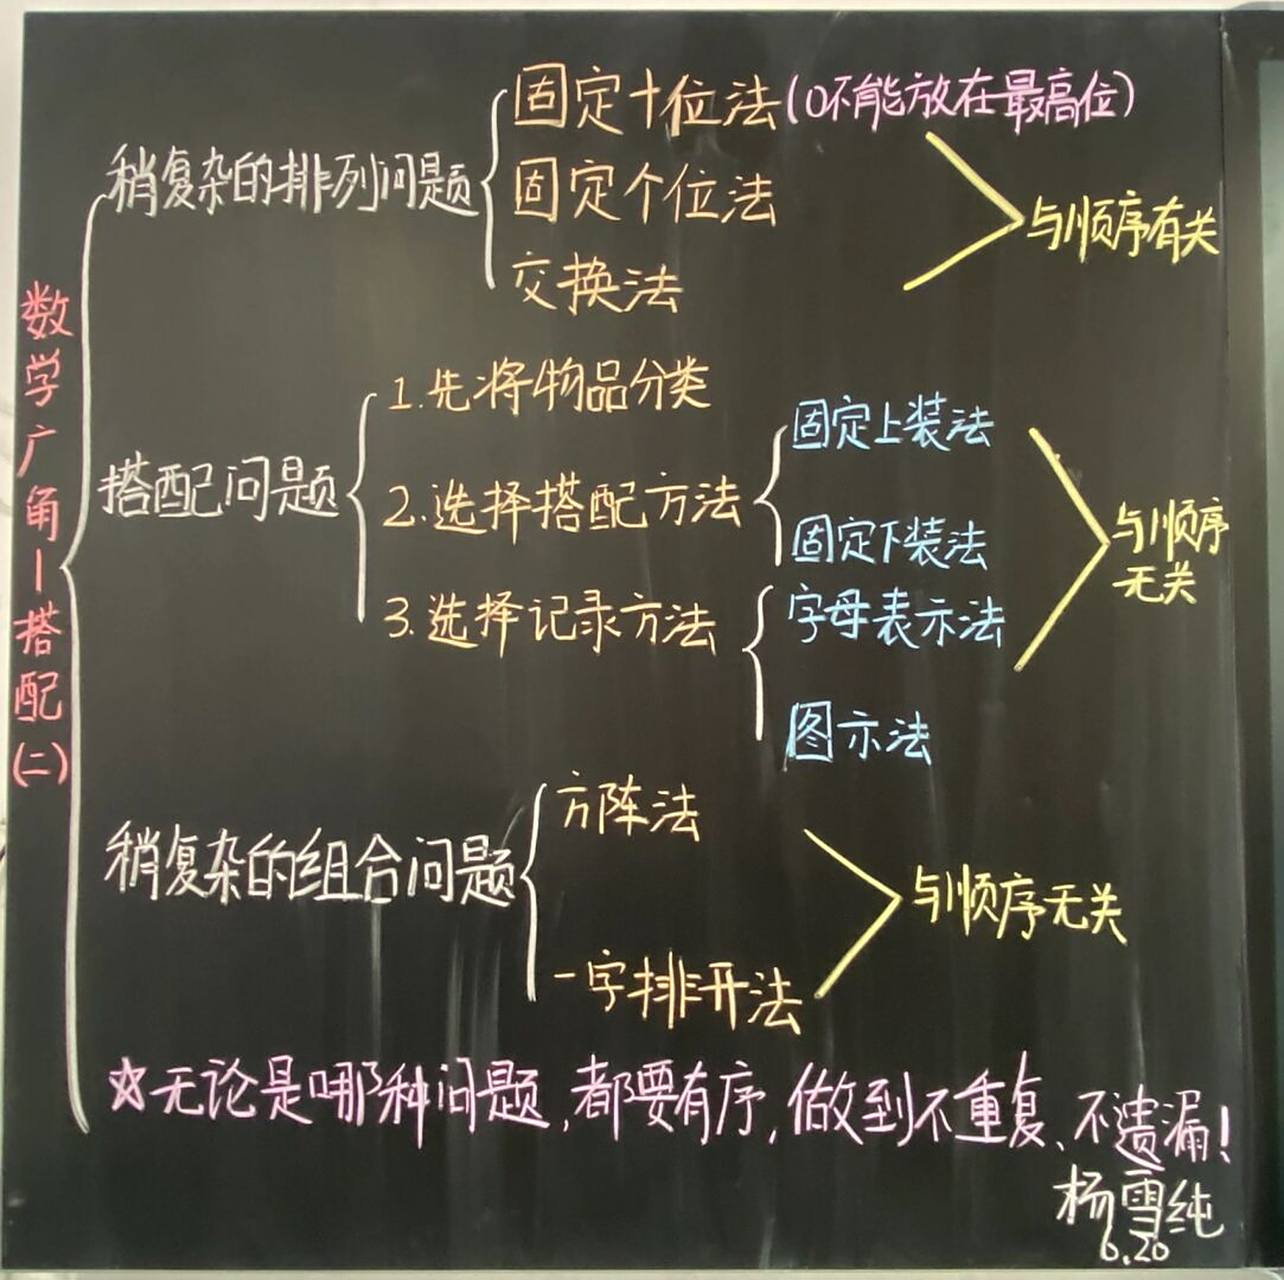 数学广角—搭配(二)
稍复杂的排列问题
固定十位法(0不能放在最高位)
固定个位法
交换法
与顺序有关
搭配问题
1.先将物品分类
2.选择搭配方法
固定上装法
固定下装法
3.选择记录方法
字母表示法
图示法
与顺序
无关
稍复杂的组合问题
方阵法
一字排开法
与顺序无关
☆无论是哪种问题,都要有序,做到不重复、不遗漏!
杨雪纯
6.20